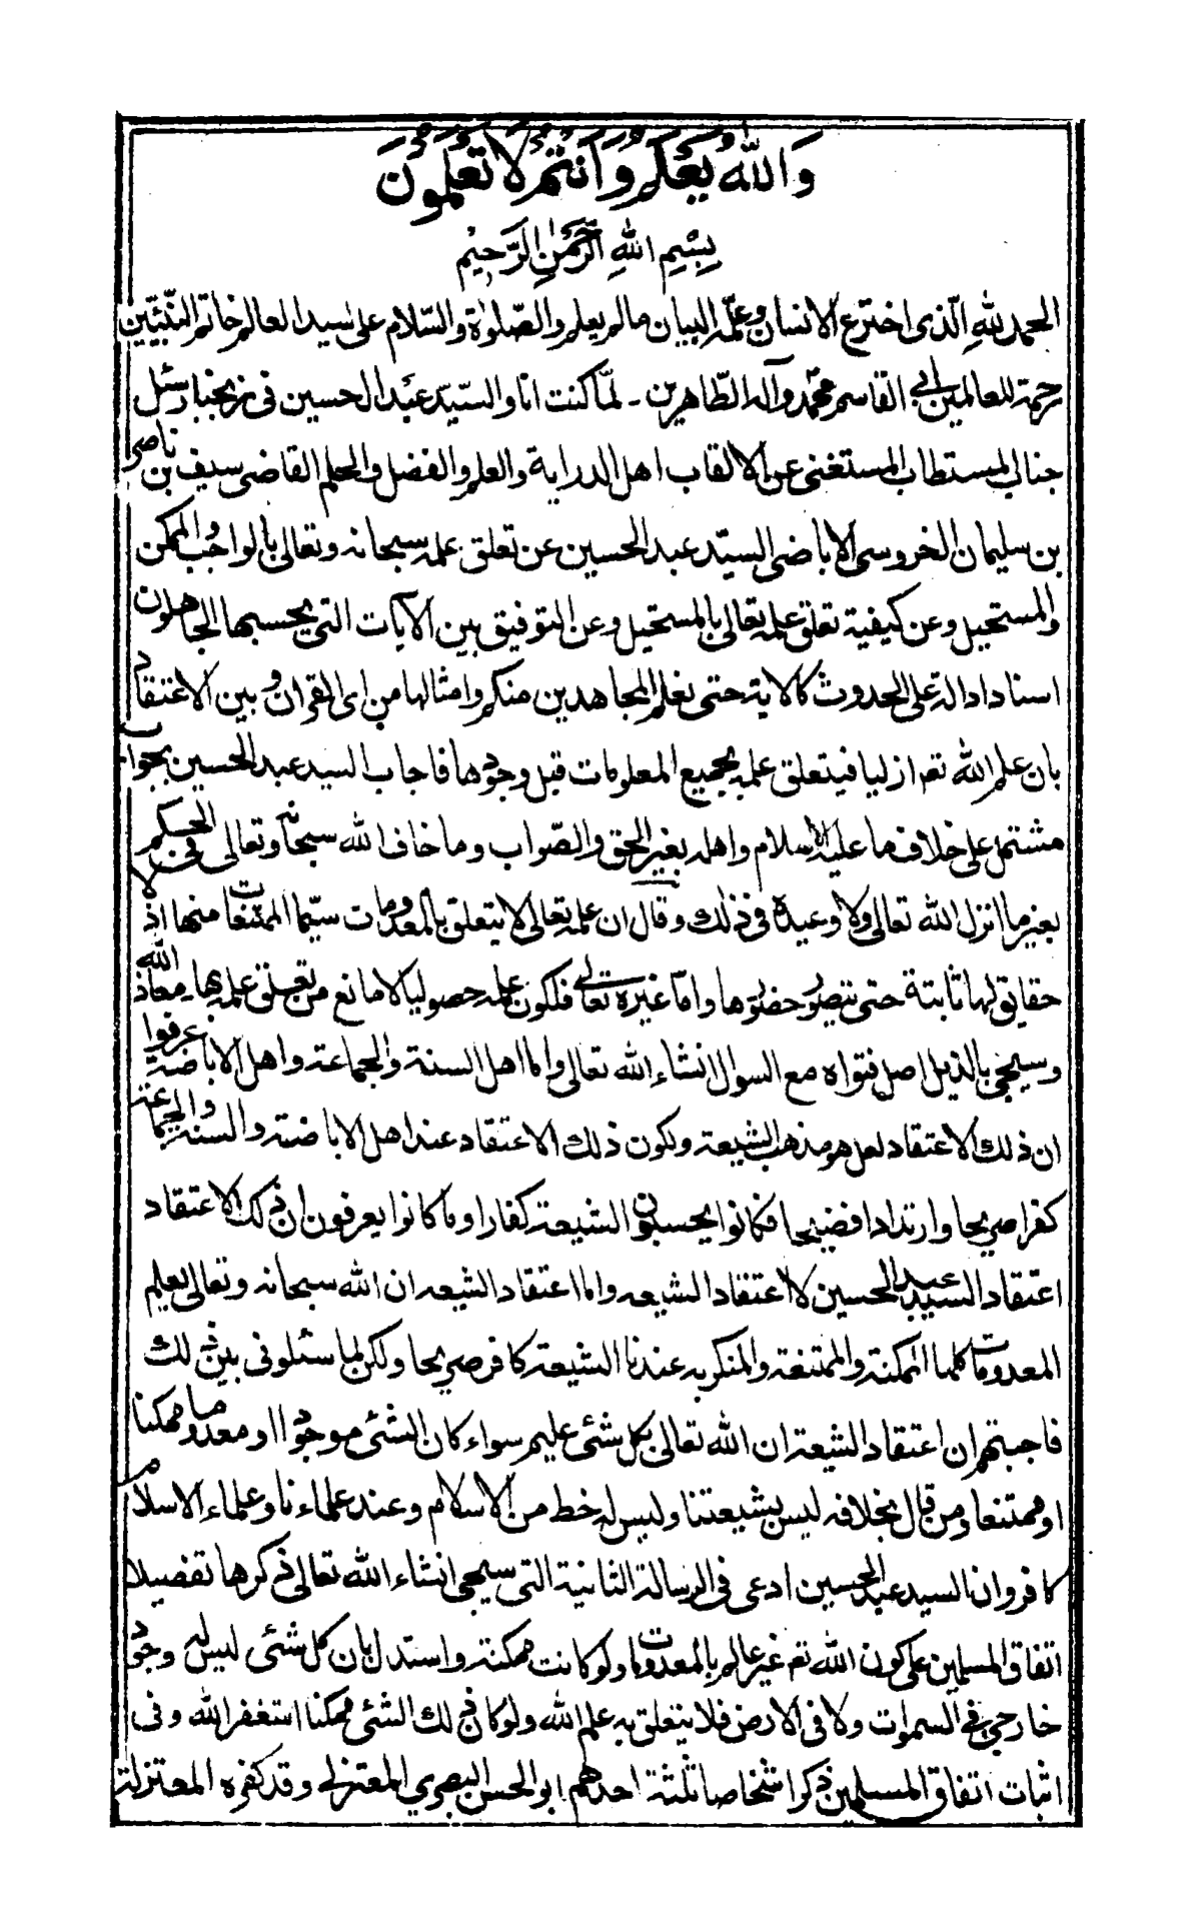 وَاللهُ يَعْلَمُ وَاَنْتُمْ لَا تَعْلَمُوْنَ
بِسْمِ اللهِ الرَّحْمٰنِ الرَّحِيْمِ
الحمد للهِ الّذى اخترع الانسان وعلّمه البيان مالم يعلم والصّلوٰة والسّلام على سيد العالم خاتم النّبيّين
رحمة للعالمين ابي القاسم محمّد وآله الطّاهرين ـ لمّا كنت انا والسّيّد عبد الحسين فى زنجبار سئل
جنابي المستطاب المستغنى عن الالقاب اهل الدراية والعلم والفضل والحلم القاضى سيف بن ناصر
بن سليمان الخروسى الاباضى السيّد عبد الحسين عن تعلق علمه سبحانه وتعالى بالواجب والممكن
والمستحيل وعن كيفية تعلق علمه تعالى بالمستحيل وعن التوفيق بين الآيات التى يحسبها الجاهلون
اسنادا دالة على الحدوث كالاية حتى نعلم المجاهدين منكم وامثالها من اى القران وبين الاعتقاد
بان علم الله تعم ازليا فيتعلق علمه بجميع المعلومات قبل وجودها فاجاب السيد عبد الحسين بجواب
مشتمل على خلاف ما عليه الاسلام واهله بغير الحق والصّواب وما خاف الله سبحانه وتعالى فى الحكم
بغير ما انزل الله تعالى ولا وعيده فى ذٰلك وقال ان علمه تعالى لا يتعلق بالمعدومات سيّما الممتنعات منها اذ لا
حقايق لها ثابتة حتى يتصور حضورها وامّا غيره تعالى فلكون علمه حصوليا لا مانع من تعلق علمه بها معاذ الله
وسيجى بالذيل اصل فتواه مع السوال انشاء الله تعالى واما اهل السنة والجماعة واهل الاباضة عرفوا
ان ذلك الاعتقاد لعل هو مذهب الشيعة ولكون ذلك الاعتقاد عند اهل الاباضة والسنة والجماعة
كفرا صريحا وارتدادا فضيحا فكانوا يحسبون الشيعة كفارا وما كانوا يعرفون ان ذلك الاعتقاد
اعتقاد السيد عبد الحسين لا اعتقاد الشيعه واما اعتقاد الشيعه ان الله سبحانه وتعالى يعلم
المعدومات كلها الممكنة والممتنعة والمنكر به عندنا الشيعة كافر صريحا ولكن لما سئلونى بين ذلك
فاجبتهم ان اعتقاد الشيعة ان الله تعالى بكل شئ عليم سواء كان الشئ موجودا او معدوما ممكنا
او ممتنعا ومن قال بخلافه ليس بشيعتنا وليس له خط من الاسلام وعند علماءنا وعلماء الاسلام
كافر وان السيد عبد الحسين ادعى فى الرسالة الثانية التى سيجى انشاء الله تعالى ذكرها تفصيلا
اتفاق المسلمين على كون الله تعم غير عالم بالمعدومات ولو كانت ممكنة واستدل بان كل شئى ليس له وجود
خارجي فى السموات ولا فى الارض فلا يتعلق به علم الله ولو كان ذلك الشئ ممكنا استغفر الله وفى
اثبات اتفاق المسلمين ذكر اشخاصا ثلثة احدهم ابو الحسن البصري المعتزلى وقد كفره المعتزلة